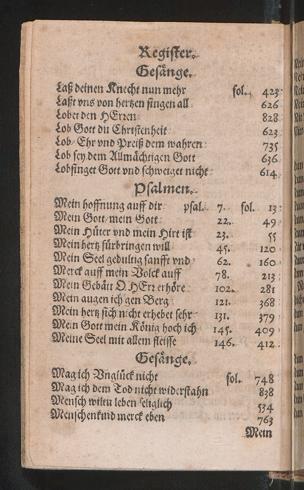 Register.
Gesänge.
Laß deinen Knecht nun mehr fol. 423
Laßt vns von hertzen singen all 626
Lobet den HErren 828
Lob Gott du Christenheit 623
Lob/ Ehr vnd Preiß dem wahren 735
Lob sey dem Allmächtigen Gott 636
Lobsinget Gott vnd schweiget nicht 614
Psalmen.
Mein hoffnung auff dir psal. 7. fol. 13
Mein Gott/ mein Gott 22. 49
Mein Hüter vnd mein Hirt ist 23. 55
Mein hertz fürbringen will 45. 120
Mein Seel gedultig sanfft vnd 62. 160
Merck auff mein Volck auff 78. 213
Mein Gebätt O HErr erhöre 102. 281
Mein augen ich gen Berg 121. 368
Mein hertz sich nicht erhebet sehr 131. 379
Mein Gott mein König hoch ich 145. 409
Meine Seel mit allem fleisse 146. 412
Gesänge.
Mag ich Vnglück nicht fol. 748
Mag ich dem Tod nicht widerstahn 838
Mensch wiltu leben seliglich 534
Menschenkind merck eben 763
Mein